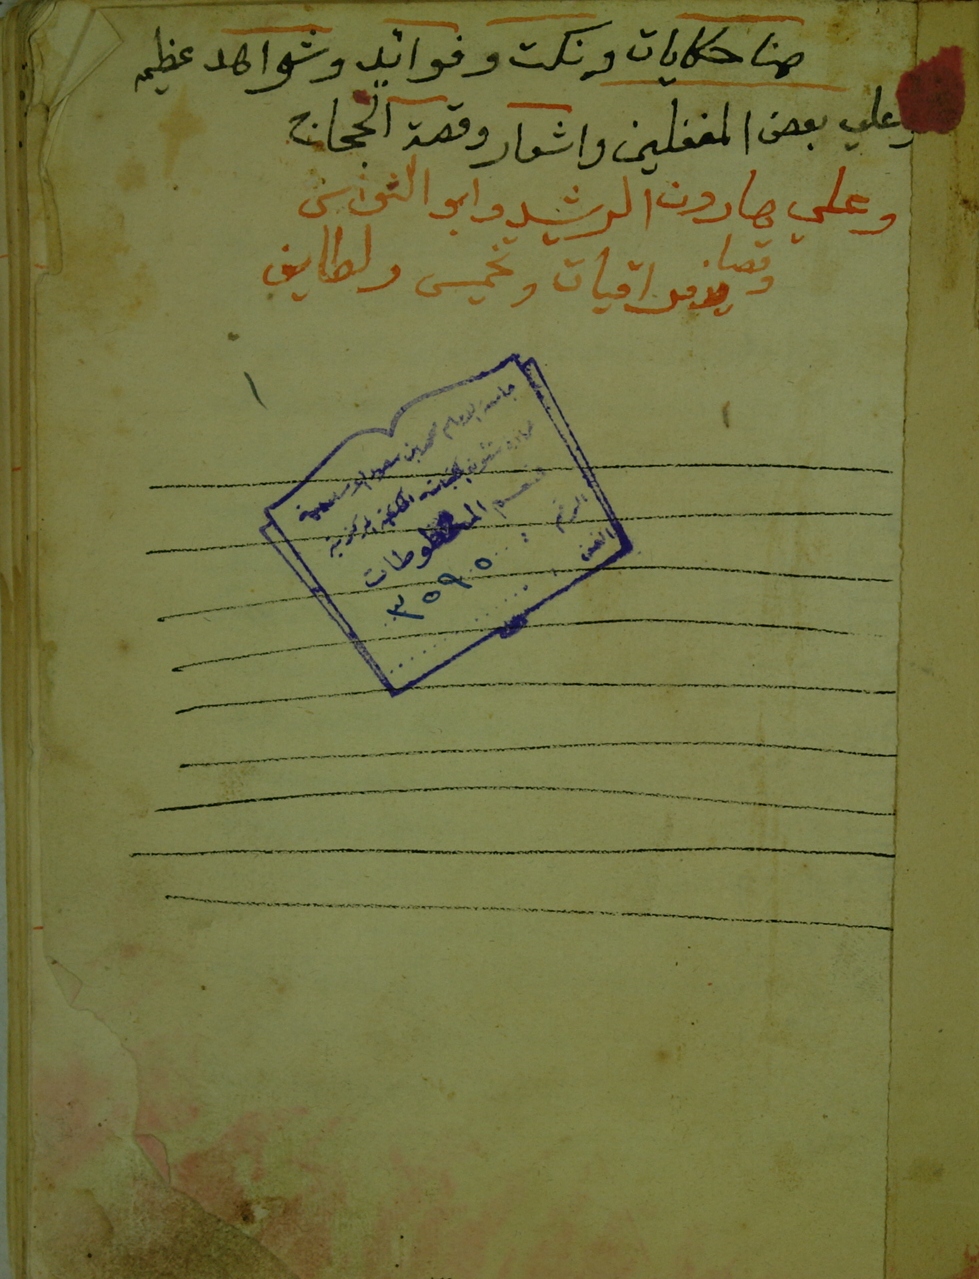 هنا حكايات ونكت وفوائد وشواهد عظيمه
وعلي بعض المغفلين واشعار وقصة الحجاج
وعلي هارون الرشيد وابو النواس
وقصايد فراقيات وتخميس ولطايف
١
جامعة الإمام محمد بن سعود الإسلامية
عمادة شئون المكتبات المكتبة المركزية
قسم المخطوطات
الرقم : ٣٥٩٥